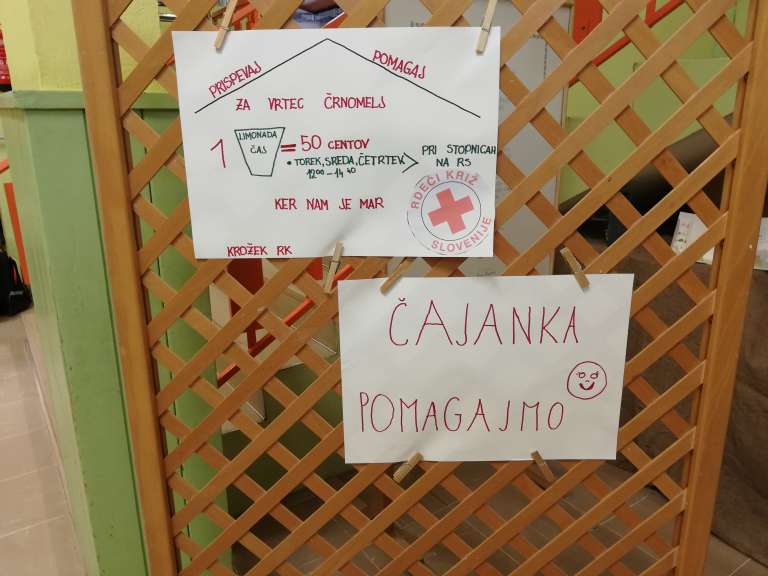 PRISPEVAJ POMAGAJ
ZA VRTEC ČRNOMELJ
1 LIMONADA ČAJ = 50 CENTOV
• TOREK, SREDA, ČETRTEK > PRI STOPNICAH NA RS
12⁰⁰ - 14⁴⁰
KER NAM JE MAR
RDEČI KRIŽ
SLOVENIJE
KROŽEK RK
ČAJANKA
POMAGAJMO